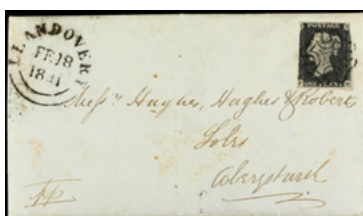 LLANDOVERY
FE 18
1841
POSTAGE
ONE PENNY
Messrs Hughes, Hughes & Robert
Solrs
Aberystwith
pp